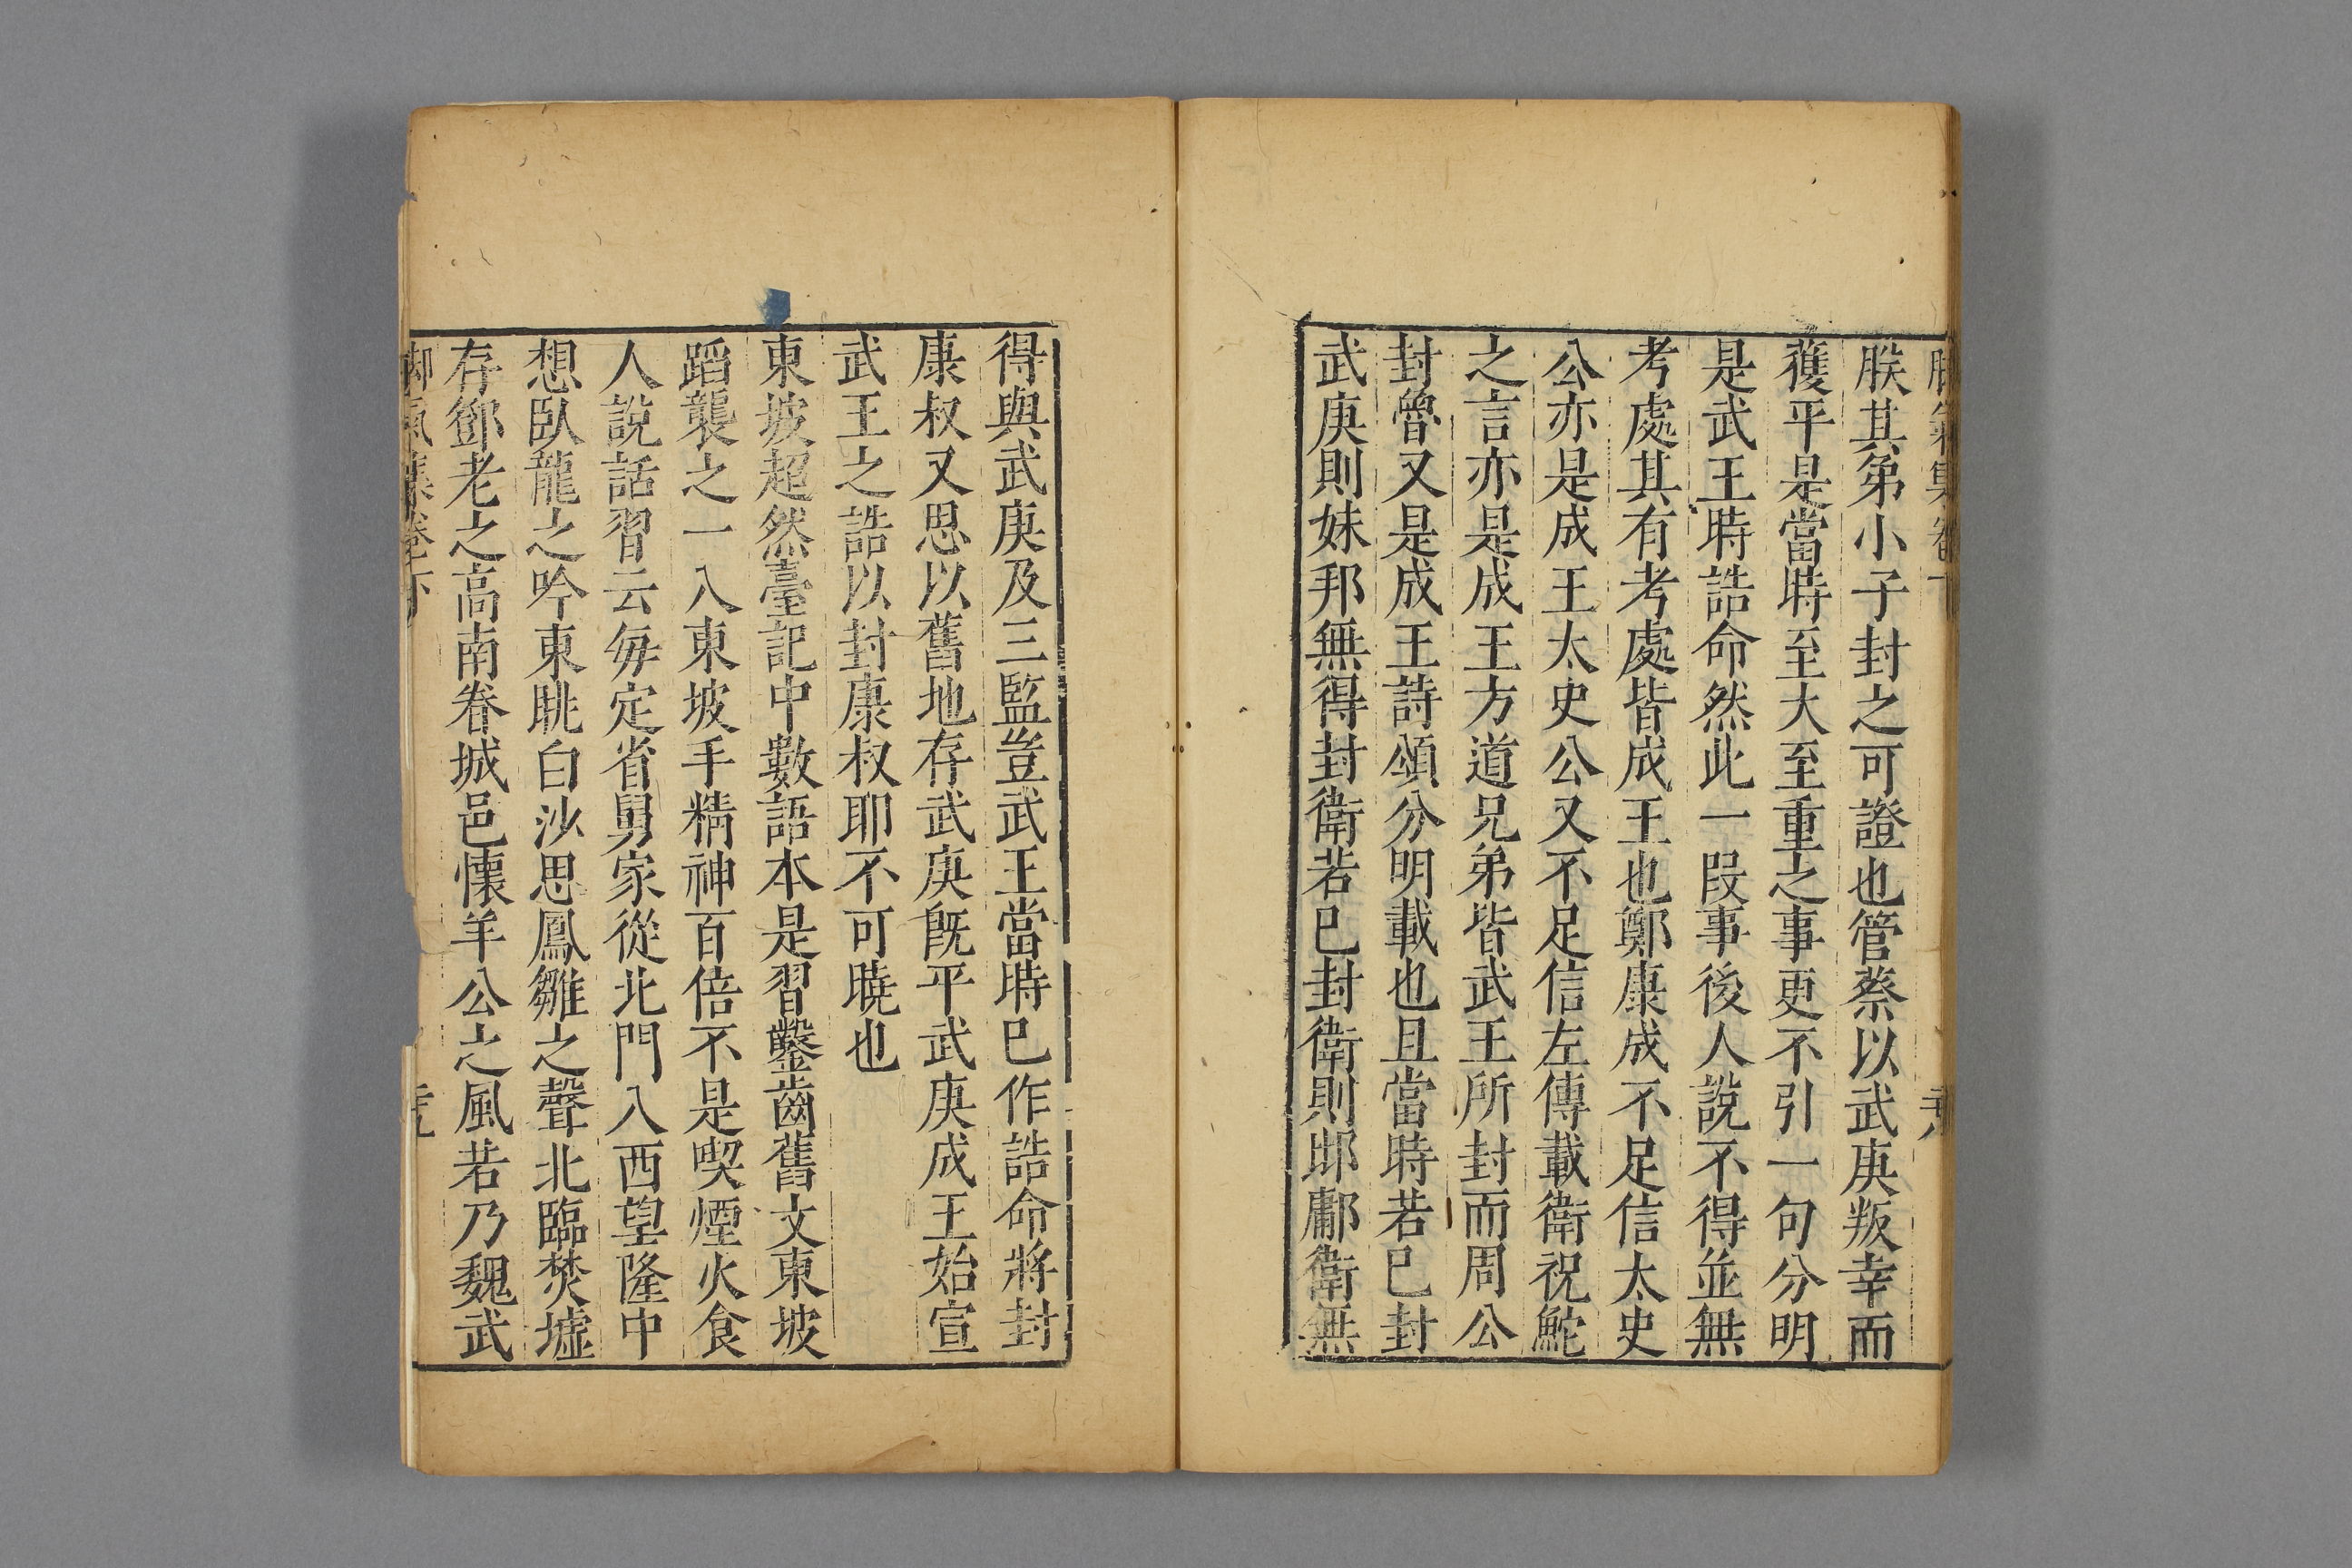 脚氣集卷下
朕其弟小子封之可證也管蔡以武庚叛幸而
獲平是當時至大至重之事更不引一句分明
是武王時誥命然此一段事後人說不得並無
考處其有考處皆成王也鄭康成不足信太史
公亦是成王太史公又不足信左傳載衛祝鮀
之言亦是成王方道兄弟皆武王所封而周公
封魯又是成王詩頌分明載也且當時若已封
武庚則妹邦無得封衛若已封衛則邶鄘衛無
得與武庚及三監豈武王當時已作誥命將封
康叔又思以舊地存武庚旣平武庚成王始宣
武王之誥以封康叔耶不可曉也
東坡超然臺記中數語本是習鑿齒舊文東坡
蹈襲之一入東坡手精神百倍不是喫煙火食
人說話習云每定省舅家從北門入西望隆中
想臥龍之吟東眺白沙思鳳雛之聲北臨樊墟
存鄧老之高南眷城邑懷羊公之風若乃魏武
脚氣集卷下